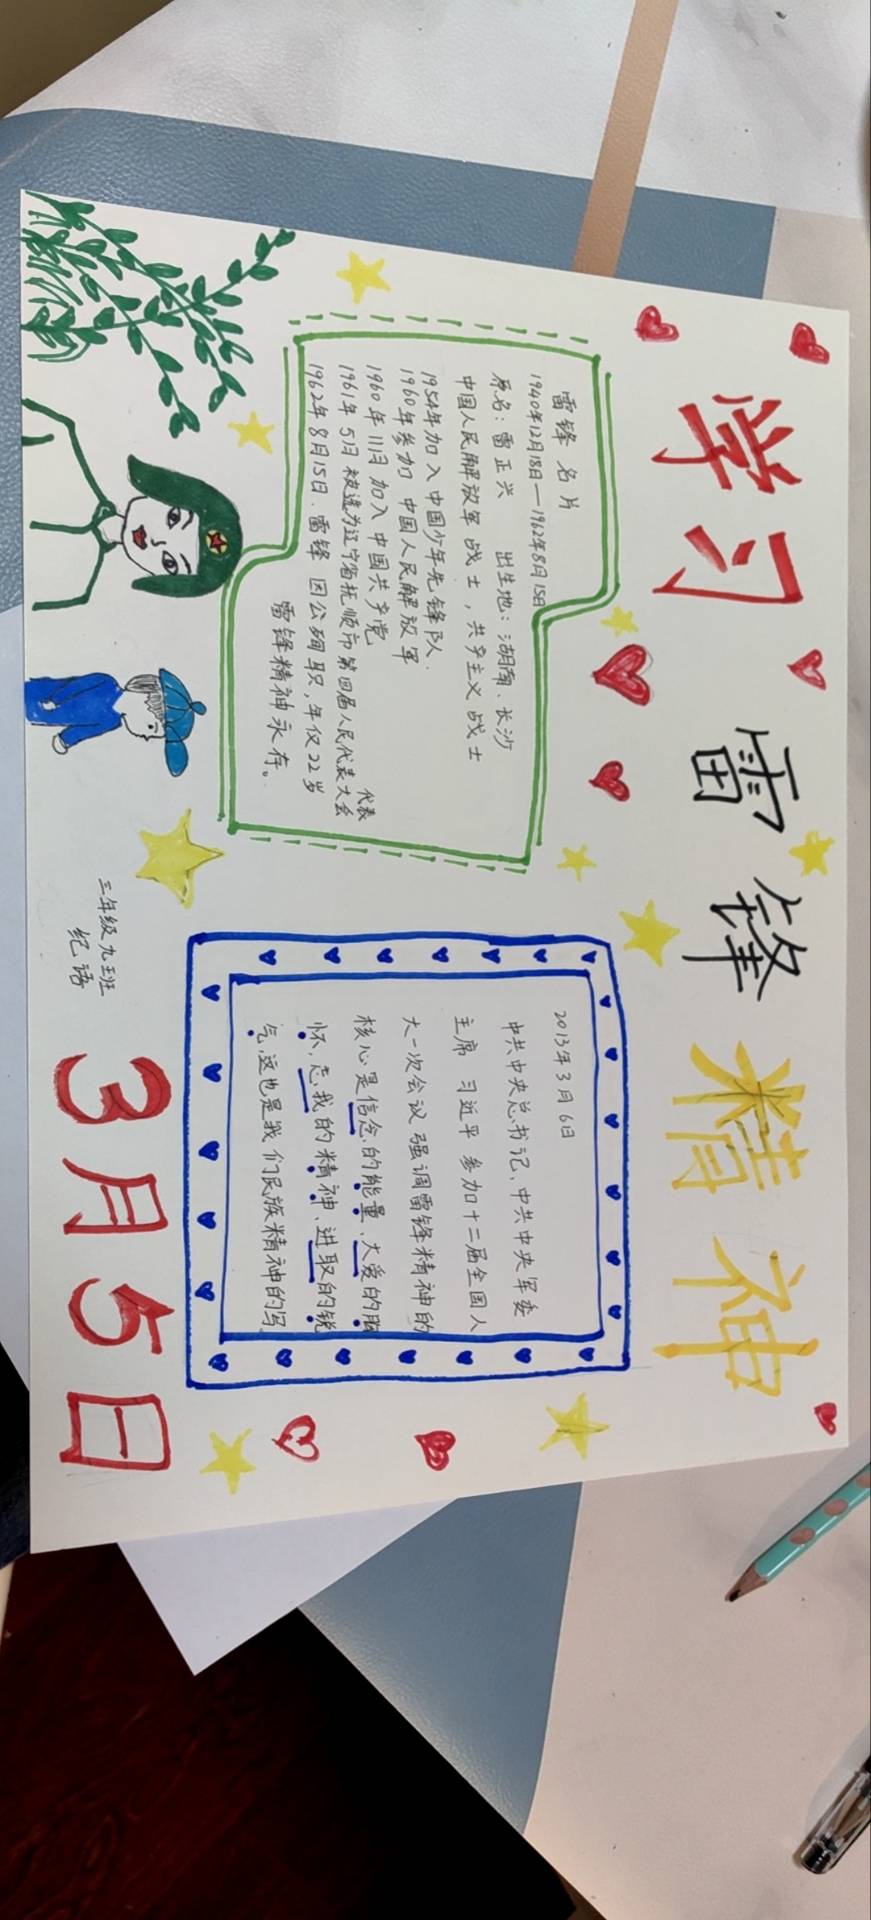 学习雷锋精神
雷锋名片
1940年12月18日—1962年8月15日
原名：雷正兴 出生地：湖南、长沙
中国人民解放军战士，共产主义战士
1954年加入中国少年先锋队.
1960年参加中国人民解放军
1960年11月加入中国共产党
代表
1961年5月被选为辽宁省抚顺市第四届人民代表大会
1962年8月15日.雷锋因公殉职，年仅22岁
雷锋精神永存。
2013年3月6日
中共中央总书记、中共中央军委
主席 习近平 参加十二届全国人
大一次会议 强调雷锋精神的
核心是信念的能量、大爱的胸
怀，忘我的精神、进取的锐
气，这也是我们民族精神的写
三年级九班
纪语
3月5日